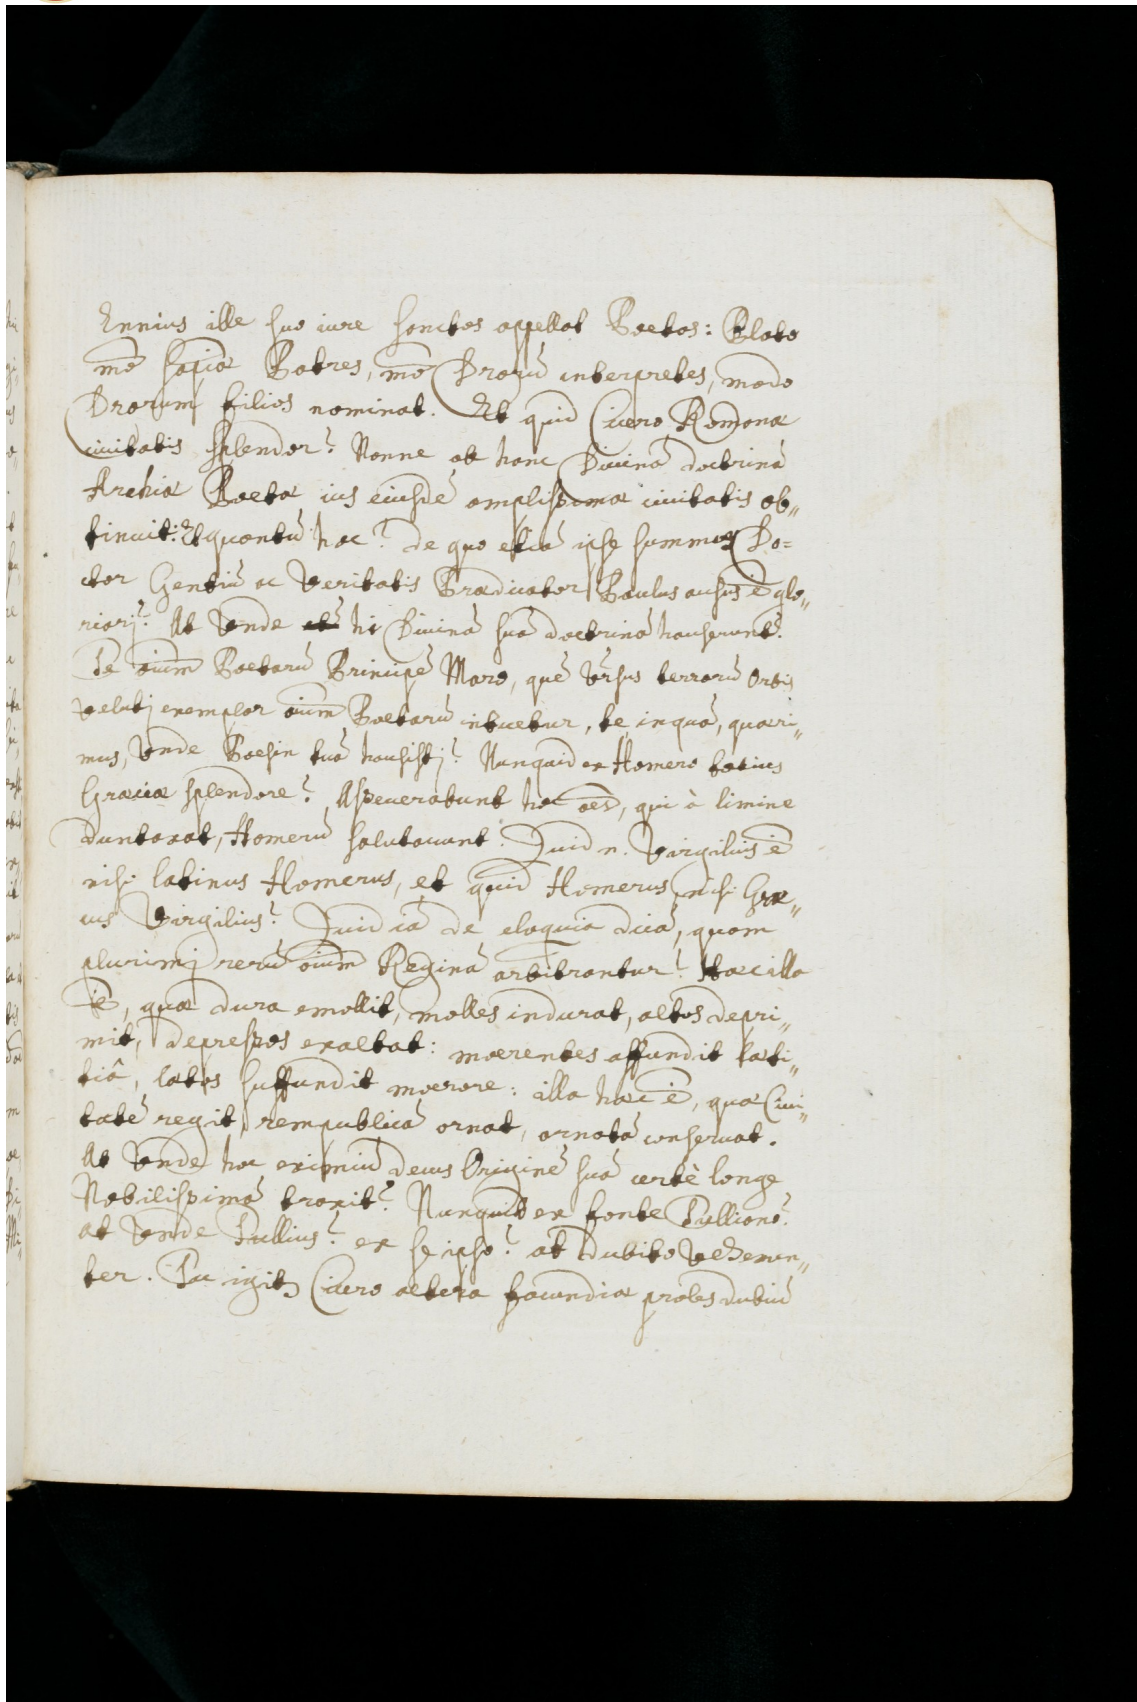 Ennius ille suo iure sanctos appellat Poetas: Plato
mō sapiæ Patres, mō Deorū interpretes, modo
Deorum filios nominat. Et quid Cicero Romanæ
ciuitatis splendor? Nonne ob hanc Diuinā doctrinā
Archiæ Poetæ ius eiusdē amplissimæ ciuitatis ob„
tinuit: Et quantū hoc? de quo etiā ipse summus Do=
ctor Gentiū ac Veritatis Prædicator Paulus ausus ē glo„
riarj? At Vnde hi Diuinā suā doctrinā hauserunt?
Te oium̄ Poetarū Principē Maro, quē Vr̄sus terrarū Orbis
Velutj exemplar oium̄ Poetarū intuetur, te inquā, quæri„
mus, Vnde Poesin tuā hausistj? Nunquid ex Homero totius
Græciæ splendore? Asseuerabunt hoc oēs, qui à limine
duntaxat, Homerū salutarunt. Quid n. Virgilius ē
nisi latinus Homerus, et quid Homerus, nisi Græ„
cus Virgilius? Quid iā de eloquia dicā, quam
plurimj rerū oium̄ Reginā arbitrantur? Hæc illa
ē, quæ dura emollit, molles indurat, altos depri„
mit, depressos exaltat: moerentes affundit læti„
tiâ, lætos suffundit moerore: illa hæc ē, quæ Ciui„
tatē regit, rempublicā ornat, ornatā conseruat.
At Vnde hoc eximiū decus Originē suā certè longe
Nobilissimā traxit? Nunquid ex fonte Tulliano?
at Vnde Tullius? ex se ipso? at dubito Vehemen„
ter. Tu igitr Cicero altera facundiæ proles dubiū